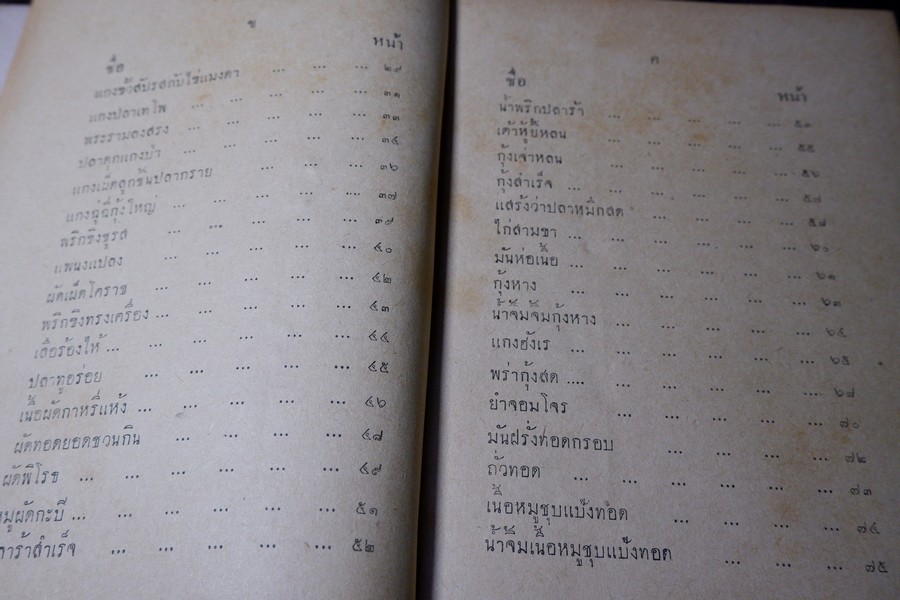 ข
ชื่อ หน้า
แกงขั้วสับรสกับไข่แมงดา ... ... ... ๒๙
แกงปลาเทโพ ... ... ... ... ๓๑
พระรามลงสรง ... ... ... ... ๓๓
ปลาดุกแกงป่า ... ... ... ... ๓๔
แกงเผ็ดลูกชิ้นปลากราย ... ... ... ๓๖
แกงฉู่ฉี่กุ้งใหญ่ ... ... ... ... ๓๗
พริกขิงชูรส ... ... ... ... ๓๙
แพนงแปลง ... ... ... ... ๔๐
ผัดเผ็ดโคราช ... ... ... ... ๔๒
พริกขิงทรงเครื่อง ... ... ... ... ... ๔๓
เสือร้องไห้ ... ... ... ... ... ๔๔
ปลาทูอร่อย ... ... ... ... ... ๔๕
เนื้อผัดกาหรี่แห้ง ... ... ... ... ... ๔๖
ผัดทอดยอดชวนกิน ... ... ... ... ๔๘
ผัดพิโรช ... ... ... ... ... ... ๔๙
หมูผัดกะบี ... ... ... ... ... ... ๕๑
ลาร้าสำเร็จ ... ... ... ... ... ๕๒
ค
ชื่อ หน้า
น้ำพริกปลาร้า ... ... ... ... ๕๓
เต้าหู้ยี้หลน ... ... ... ... ๕๕
กุ้งเจ่าหลน ... ... ... ... ๕๖
กุ้งสำเร็จ ... ... ... ... ... ๕๗
แสร้งว่าปลาหมึกสด ... ... ... ... ๕๘
ไก่สามขา ... ... ... ... ... ๖๐
มันห่อเนื้อ ... ... ... ... ... ๖๑
กุ้งหาง ... ... ... ... ... ๖๓
น้ำจิ้มจิ้มกุ้งหาง ... ... ... ... ๖๔
แกงฮังเร ... ... ... ... ... ๖๕
พร่ากุ้งสด .... ... ... ... ... ๖๘
ยำจอมโจร ... ... ... ... ๗๐
มันฝรั่งทอดกรอบ ... ... ... ... ๗๒
ถั่วทอด ... ... ... ... ... ... ๗๓
เนื้อหมูชุบแป้งทอด ... ... ... ... ๗๔
น้ำจิ้มเนื้อหมูชุบแป้งทอด ... ... ... ๗๕